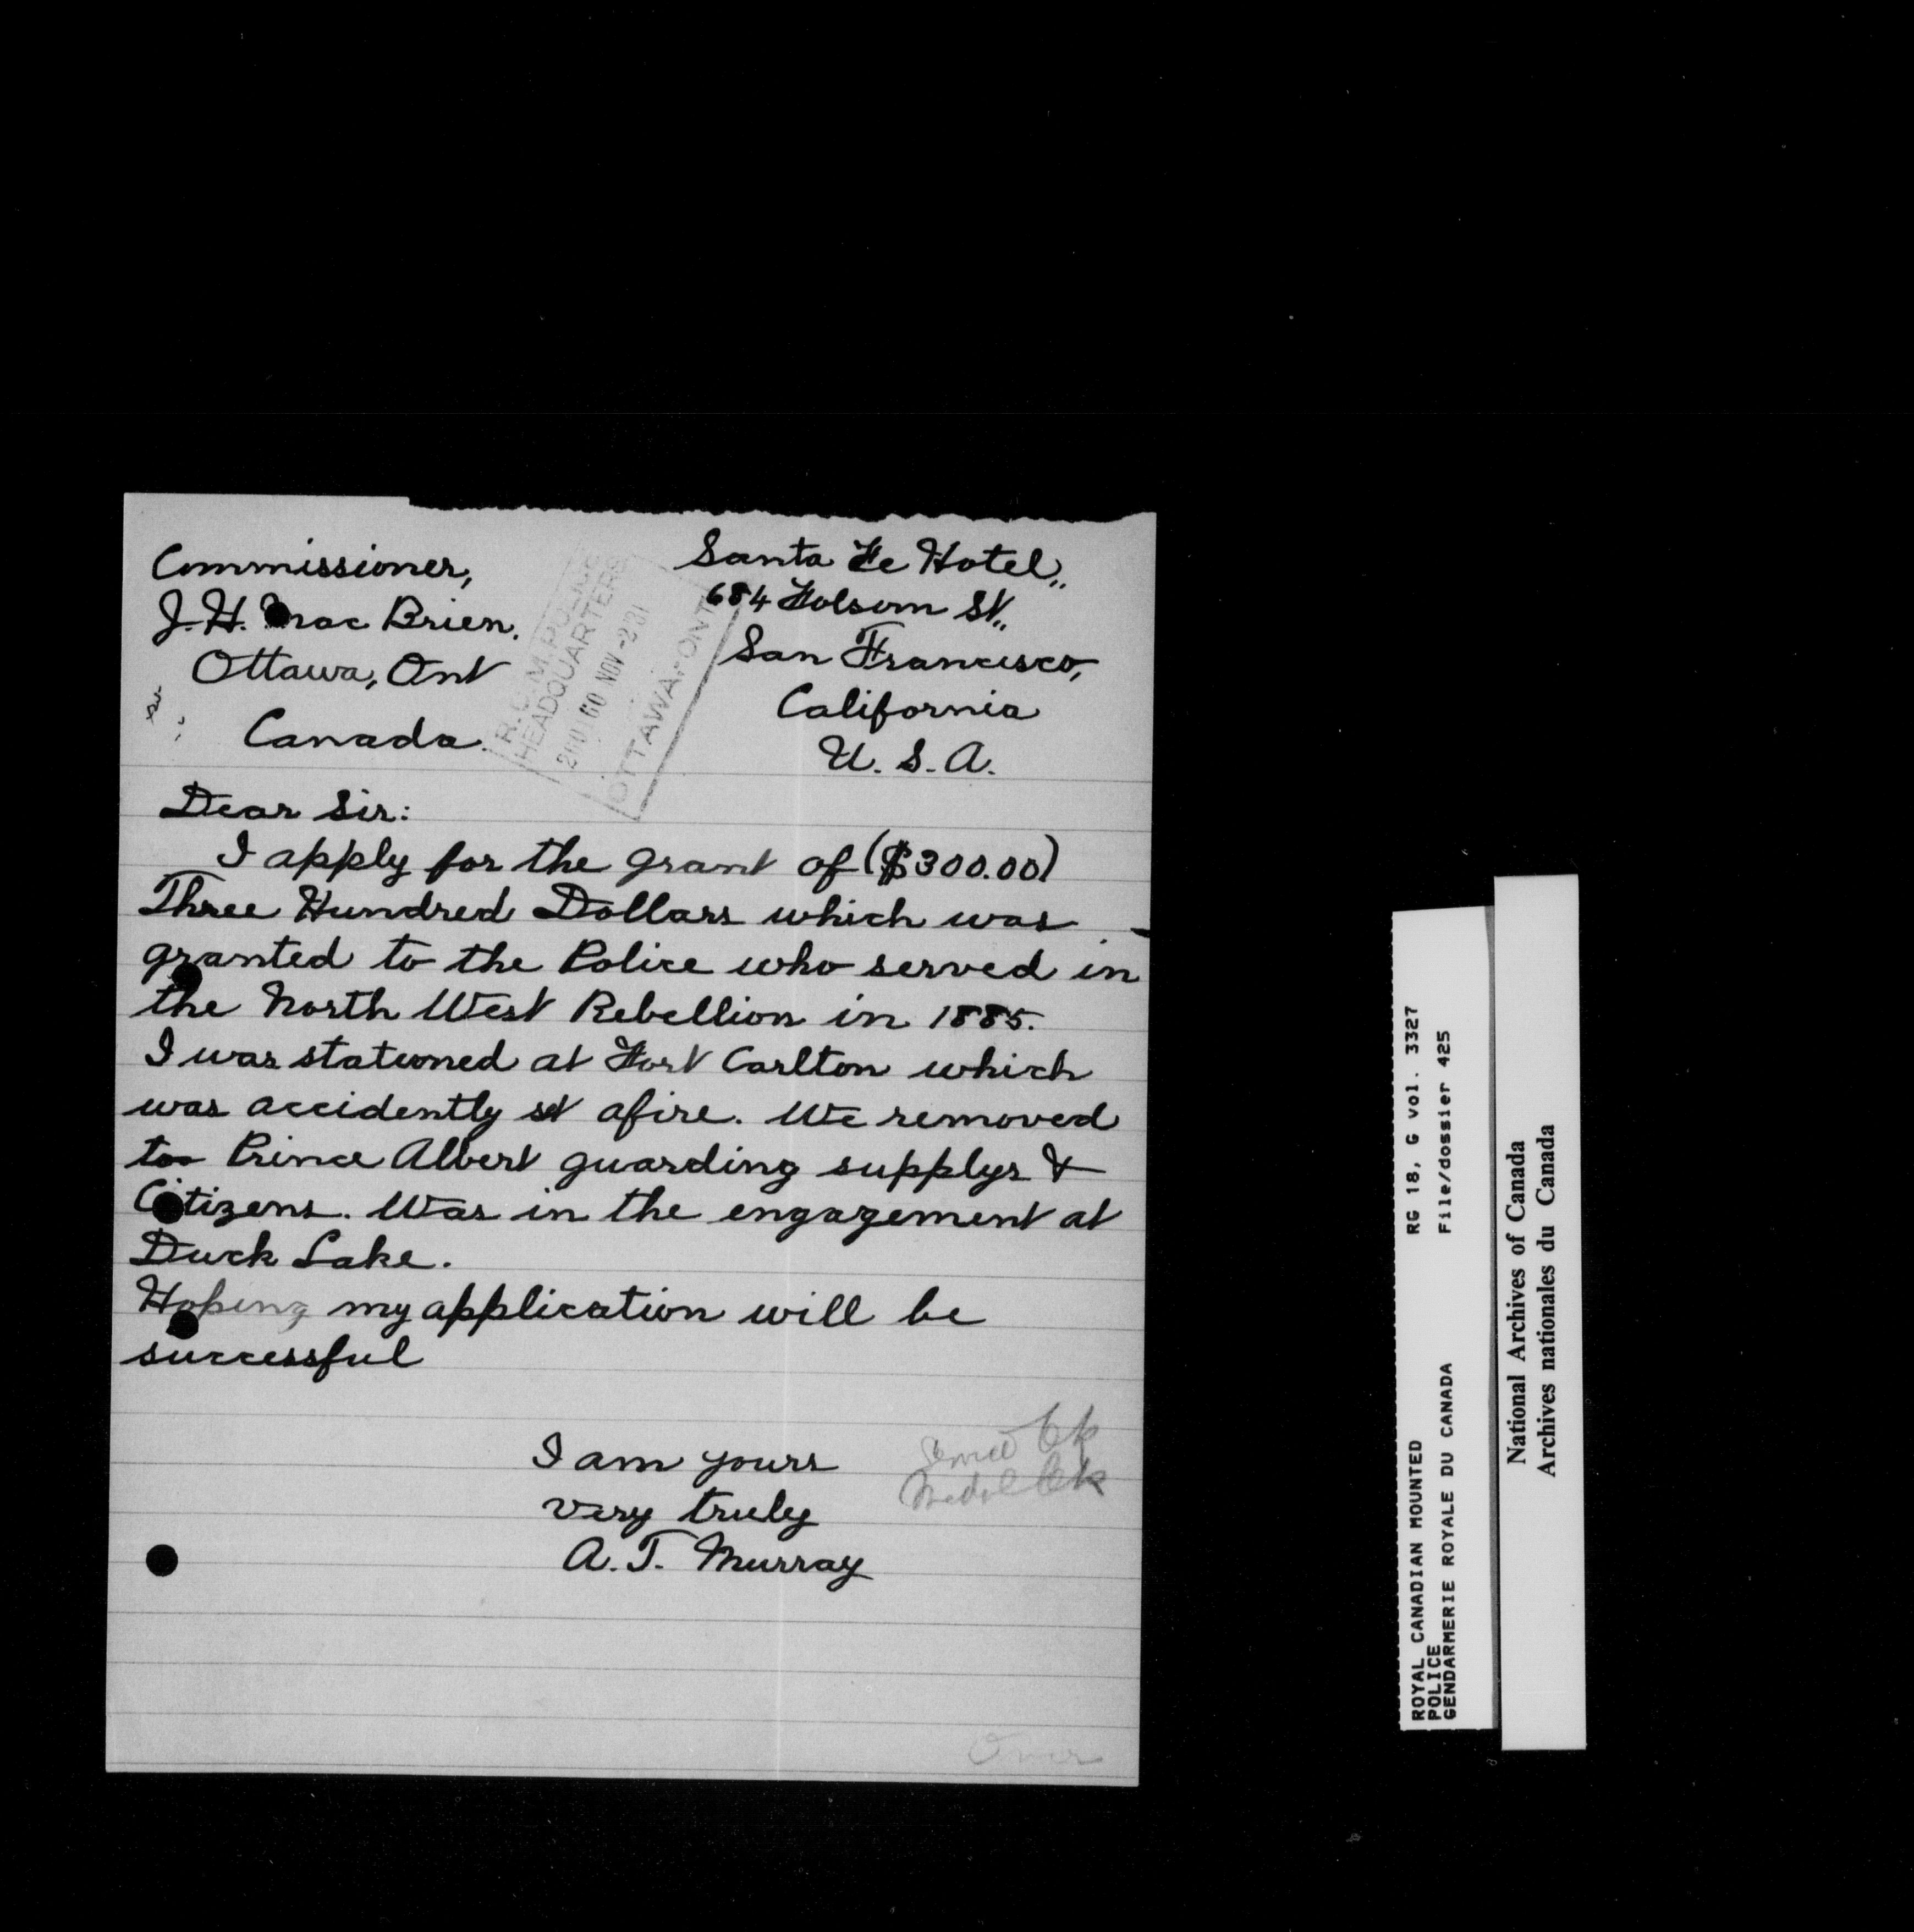 Commissioner,
J. H. MacBrien.
Ottawa, Ont
Canada.
Santa Fe Hotel,,
684 Folsom St,,
San Francisco,
California
U. S. A.
R.C.M. POLICE
HEADQUARTERS
NOV -2 31
OTTAWA, ONT.
Dear Sir:
I apply for the grant of ($300.00)
Three Hundred Dollars which was
granted to the Police who served in
the North West Rebellion in 1885.
I was stationed at Fort Carlton which
was accidently set afire. We removed
too Prince Albert guarding supplys &
Citizens. Was in the engagement at
Duck Lake.
Hoping my application will be
successful
I am yours
very truly
A. T. Murray
Service Ok
Medal Ok
Over
ROYAL CANADIAN MOUNTED
POLICE
GENDARMERIE ROYALE DU CANADA
RG 18, G vol. 3327
File/dossier 425
National Archives of Canada
Archives nationales du Canada